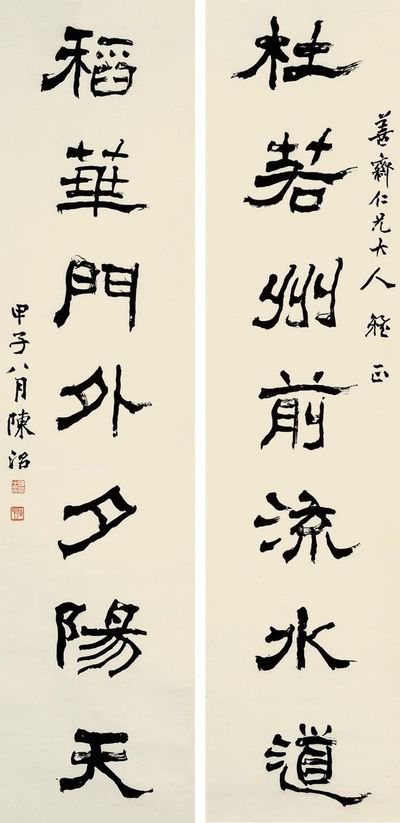 杜若州前流水道
善齋仁兄大人雅正
稻華門外夕陽天
甲子八月陳沼